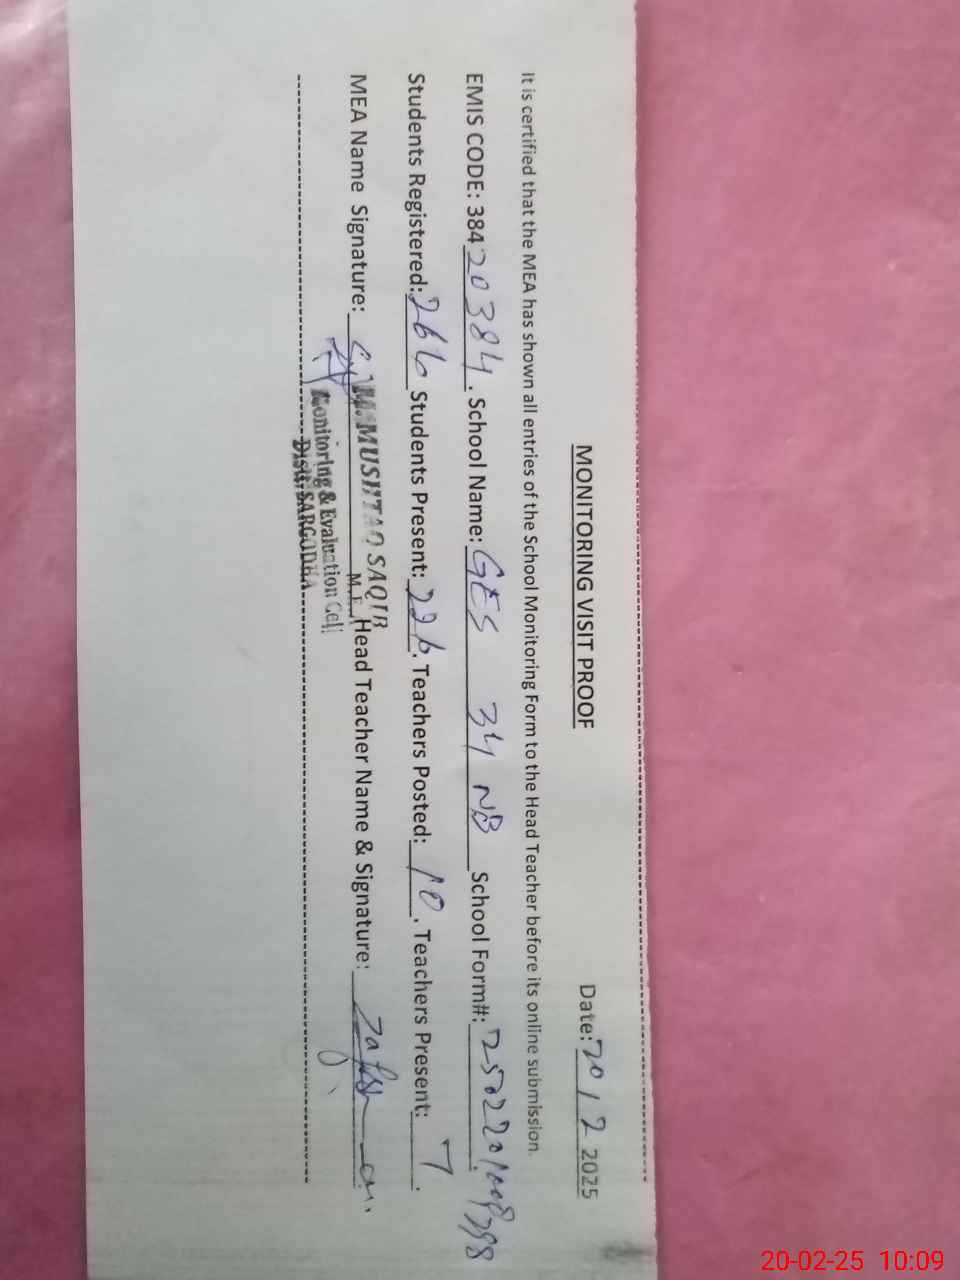 MONITORING VISIT PROOF
Date: 20/2 2025
It is certified that the MEA has shown all entries of the School Monitoring Form to the Head Teacher before its online submission.
EMIS CODE: 38420384. School Name: GES 34 NB School Form#:
Students Registered: 266 Students Present: 226. Teachers Posted: 10. Teachers Present: 7.
MEA Name Signature: M. MUSHTAQ SAQIB Head Teacher Name & Signature:
M.E.A
Monitoring & Evaluation Cell
Distt: SARGODHA
20-02-25 10:09